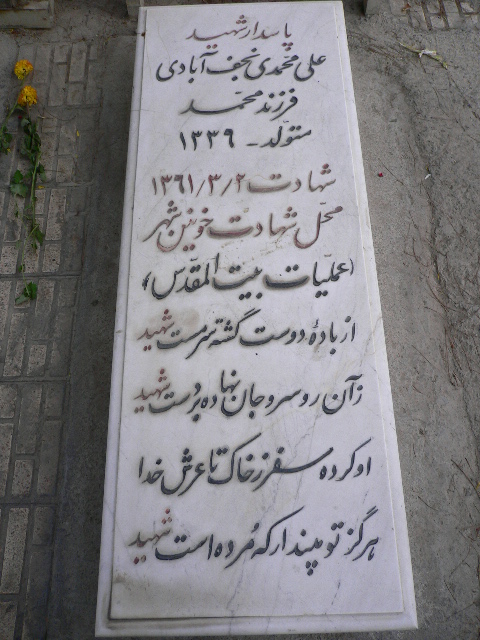 پاسدار شهید
علی محمدی نجف آبادی
فرزند محمد
متولد - ۱۳۳۹
شهادت ۱۳۶۱/۳/۲
محل شهادت خونین شهر
(عملیات بیت المقدس)
از بادهٔ دوست گشته سرمست شهید
زآن رو سر و جان نهاده بر دست شهید
او کرده سفر ز خاک تا عرش خدا
هرگز تو مپندار که مُرده است شهید